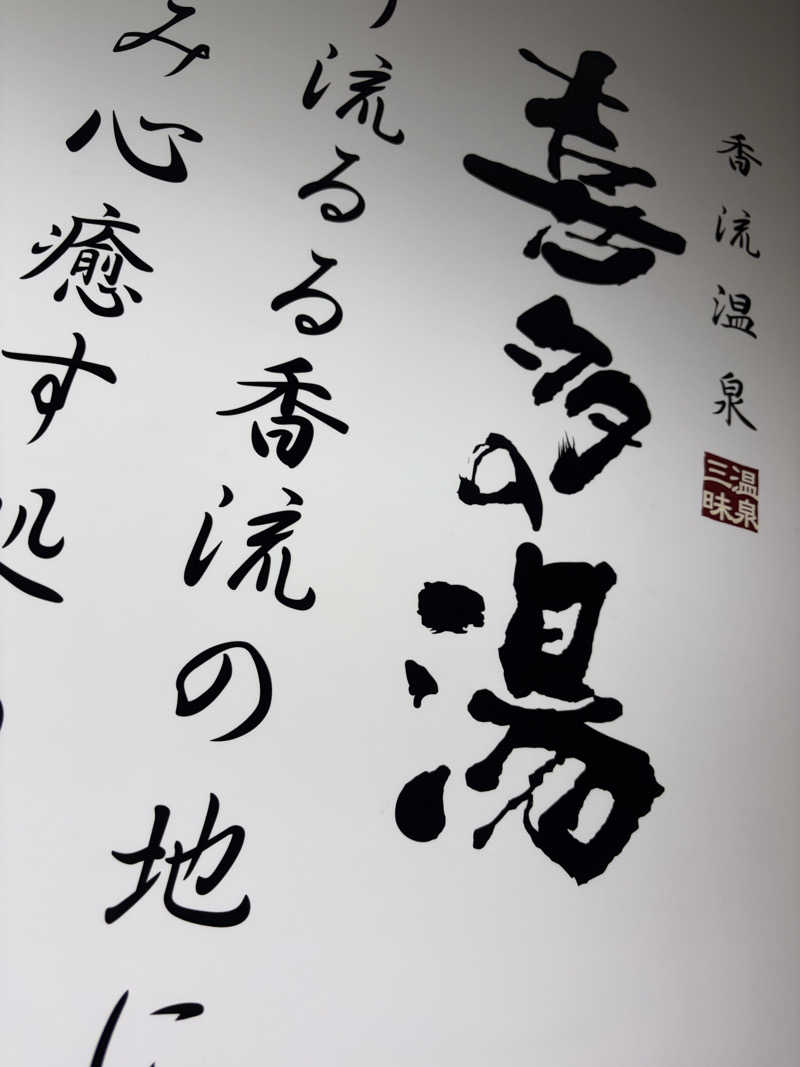 香流温泉
温泉三昧
喜多の湯
流るる香流の地に
み心癒す処